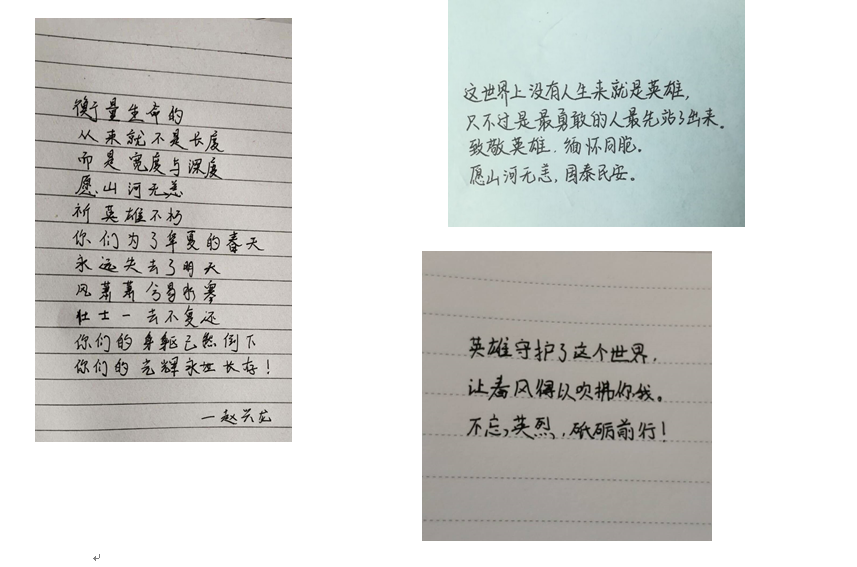 衡量生命的
从来就不是长度
而是宽度与深度
愿山河无恙
祈英雄不朽
你们为了华夏的春天
永远失去了明天
风萧萧兮易水寒
壮士一去不复还
你们的身躯已然倒下
你们的光辉永世长存！
—赵兴龙
这世界上没有人生来就是英雄，
只不过是最勇敢的人最先站了出来。
致敬英雄，缅怀同胞。
愿山河无恙，国泰民安。
英雄守护了这个世界，
让春风得以吹拂你我。
不忘英烈，砥砺前行！